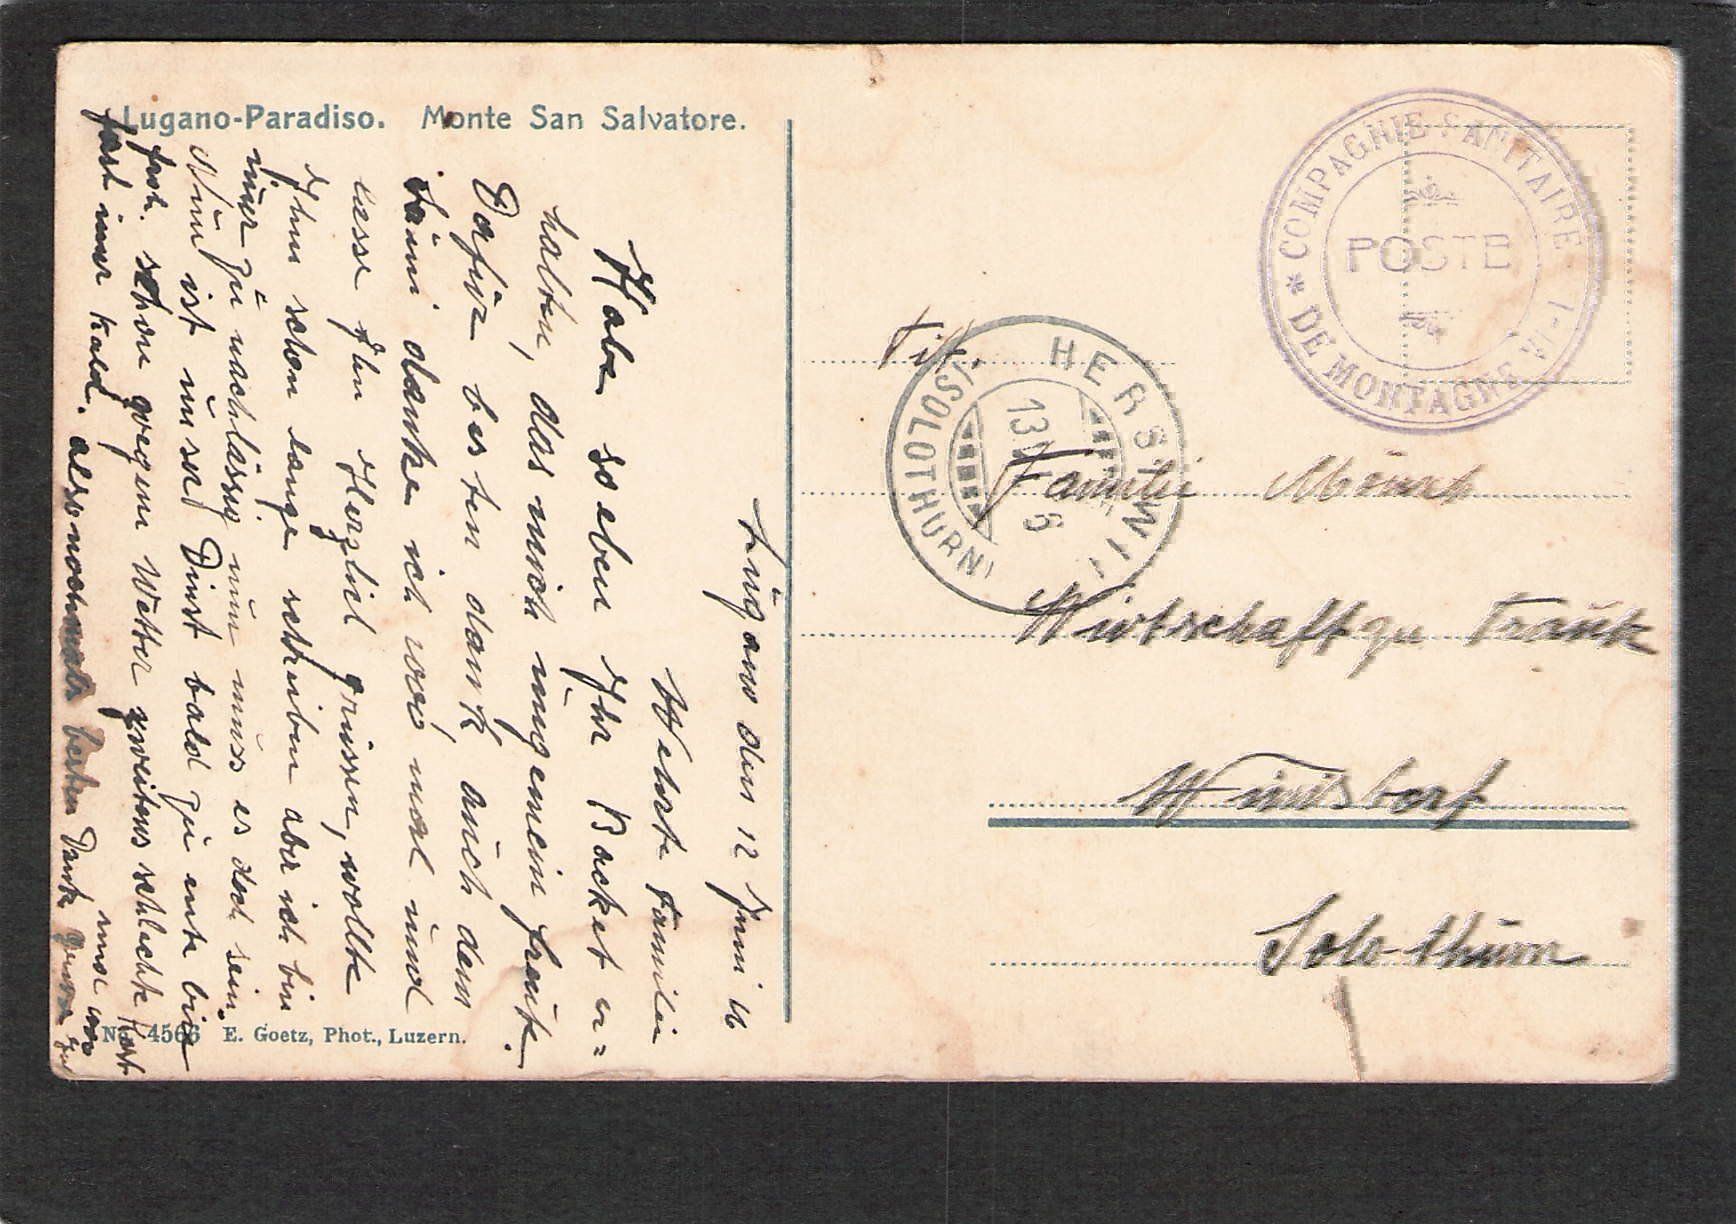 Lugano-Paradiso. Monte San Salvatore.
Lugano den 12 Juni 16
Wehrte Familie
Habe soeben Ihr Backet er=
halten, das mich ungemein freut.
Dafür besten dank auch dem
danke ich noch mal und
lasse Ihn Herzlil grüssen, wollte
Ihm schon lange schriben aber ich bin
imer zu nachlässig nun muss es doch sein.
Nun ist unser Dinst bald zu ente bin
froh. schon wegem Wetter zweitens schlechte Kost
fast imer kald. also nochmals besten Dank
und
No. 4566 E. Goetz, Phot., Luzern.
* COMPAGNIE SANITAIRE I-VI DE MONTAGNE
POSTE
HERSIWIL
(SOLOTHURN)
13
6
Tit.
Familie
Wirtschaft zu Traube
Winistorf
Solothurn